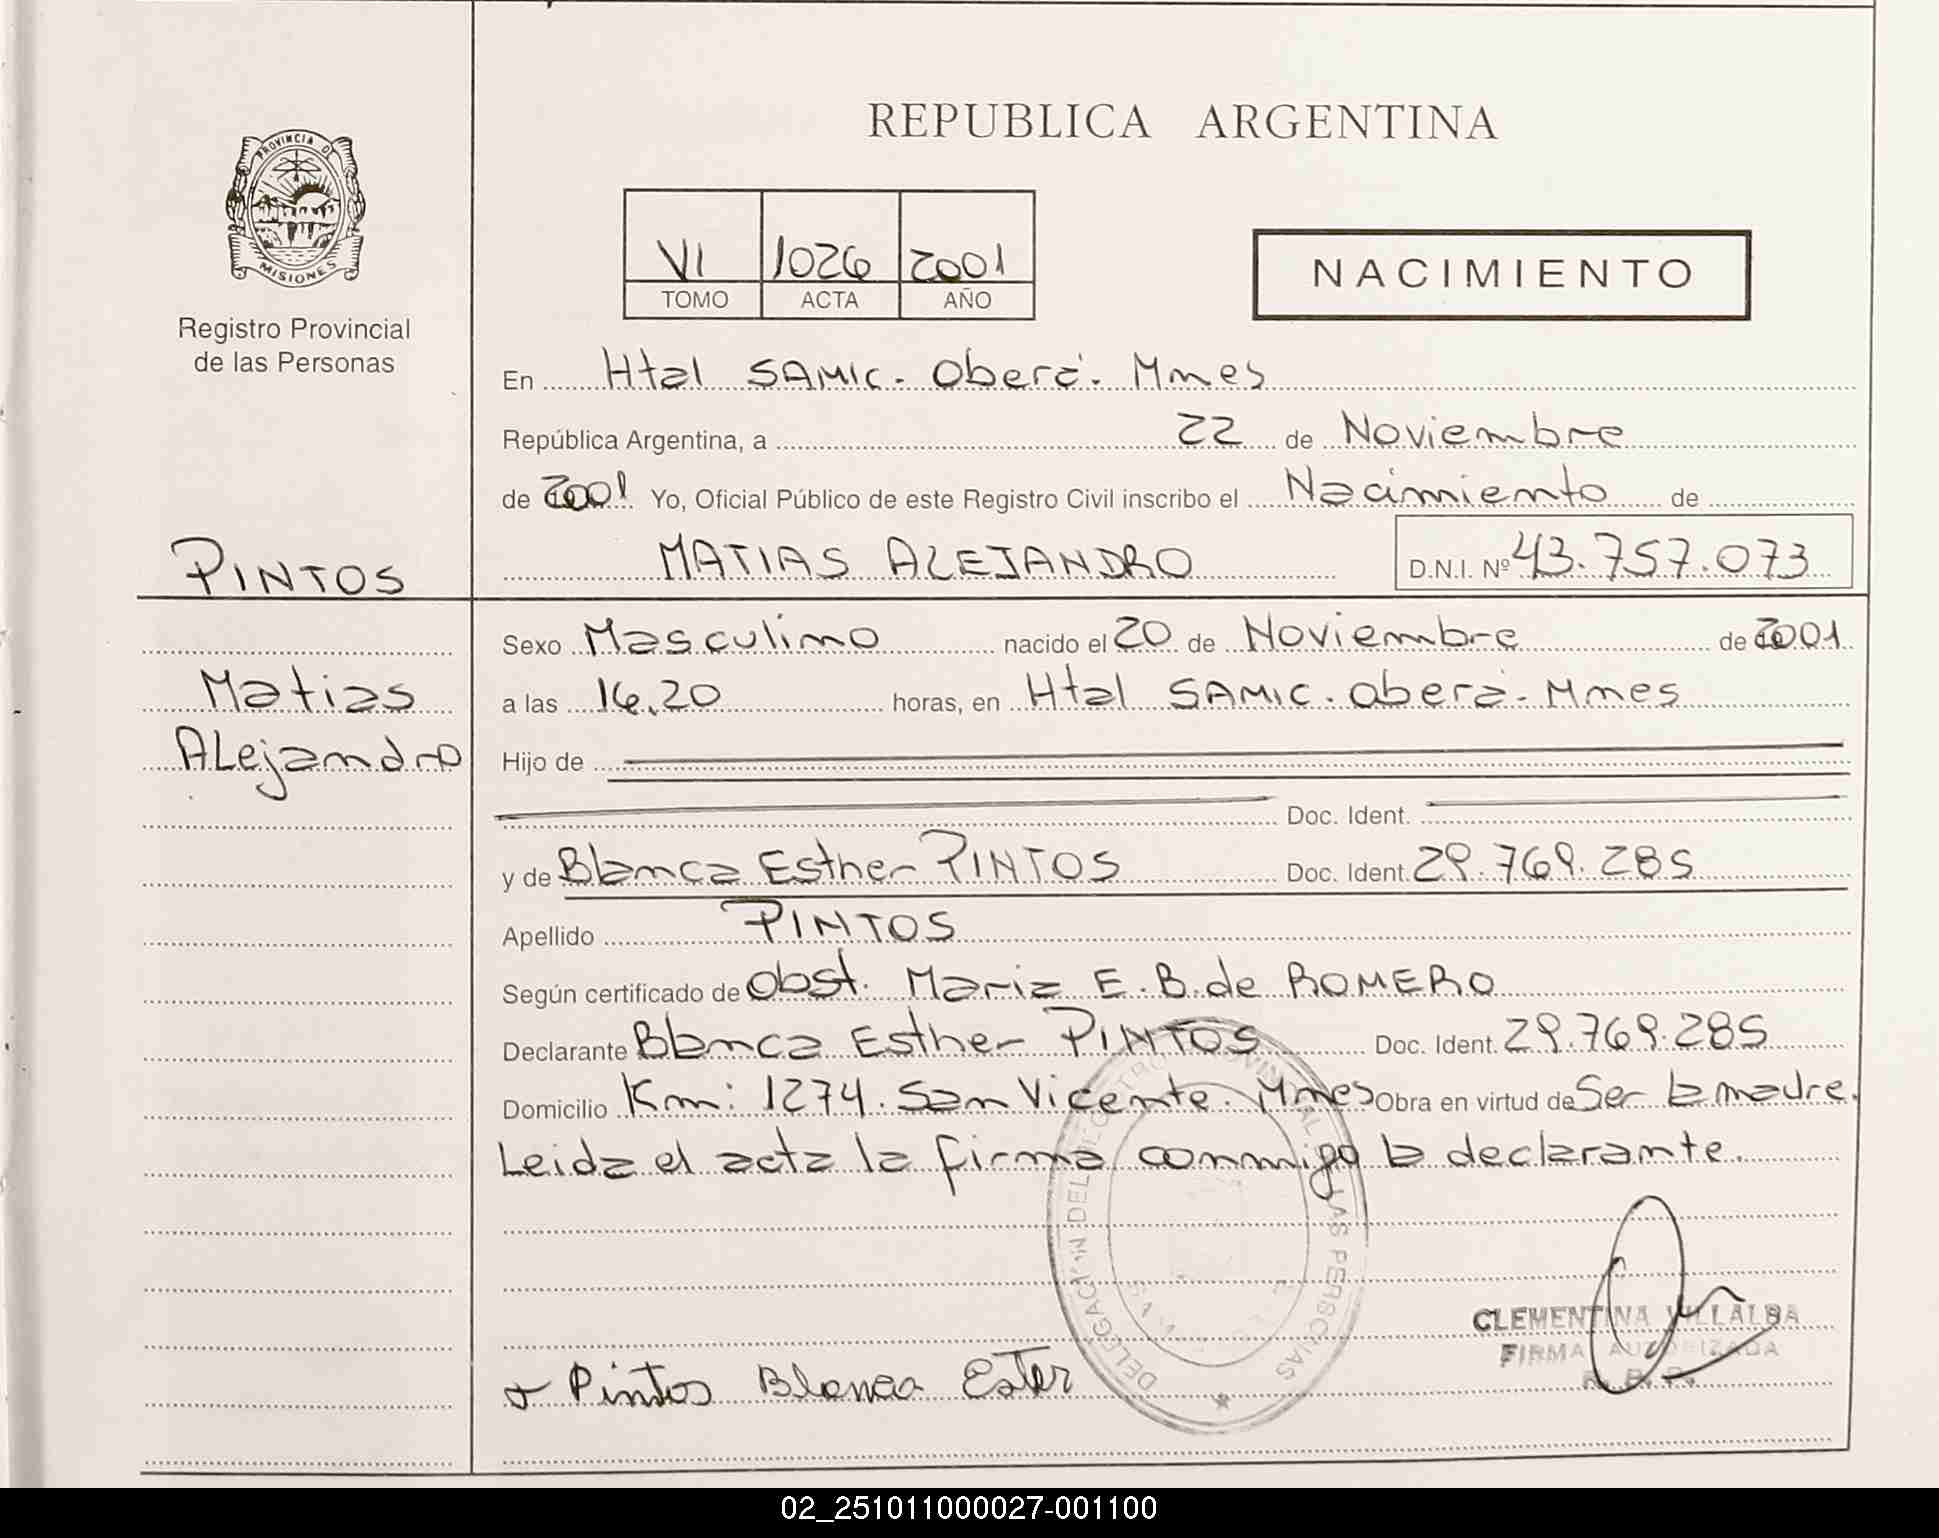 PROVINCIA DE
MISIONES
Registro Provincial
de las Personas
PINTOS
Matias
Alejandro
REPUBLICA ARGENTINA
VI 1026 2001
TOMO ACTA AÑO
NACIMIENTO
En Htal SAMIC. Oberá. Mnes
República Argentina, a 22 de Noviembre
de 2001 Yo, Oficial Público de este Registro Civil inscribo el Nacimiento de
MATIAS ALEJANDRO D.N.I. Nº 43.757.073
Sexo Masculino nacido el 20 de Noviembre de 2001
a las 16.20 horas, en Htal SAMIC. Oberá. Mnes
Hijo de
Doc. Ident.
y de Blanca Esther PINTOS Doc. Ident. 29.769.285
Apellido PINTOS
Según certificado de Obst. Maria E. B. de ROMERO
Declarante Blanca Esther PINTOS Doc. Ident. 29.769.285
Domicilio Km: 1274. San Vicente. Mnes Obra en virtud de Ser la madre.
Leida el acta la firma conmigo la declarante.
DELEGACION DEL REGISTRO PROVINCIAL DE LAS PERSONAS
CLEMENTINA VILLALBA
FIRMA AUTORIZADA
Pintos Blanca Ester
02_251011000027-001100